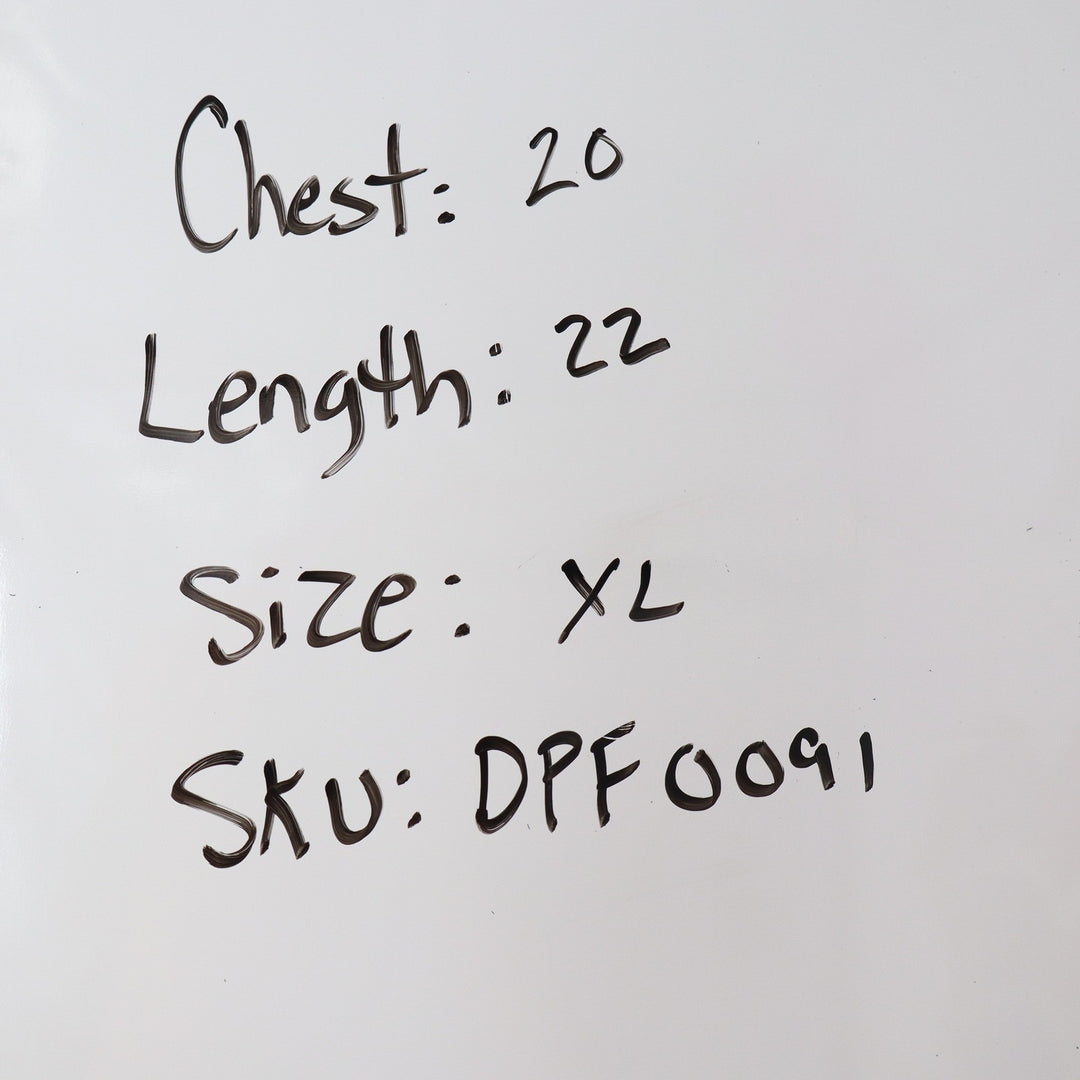 Chest: 20
Length: 22
Size: XL
Sku: DPF0091